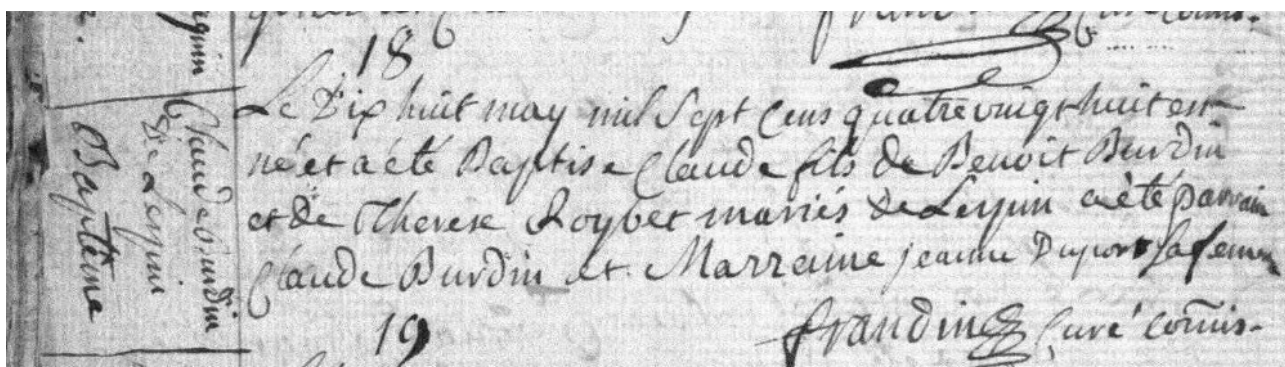 18
Le Dix huit may mil Sept Cens quatre vingt huit est
né et a été Baptise Claude fils de Benoit Burdin
et de Therese Roybet mariés de Leyin a été parrain
Claude Burdin et Marraine jeanne Duport Sa femme
frandin Curé Com̃is-
19
Claude Burdin
De Leyin
Baptême